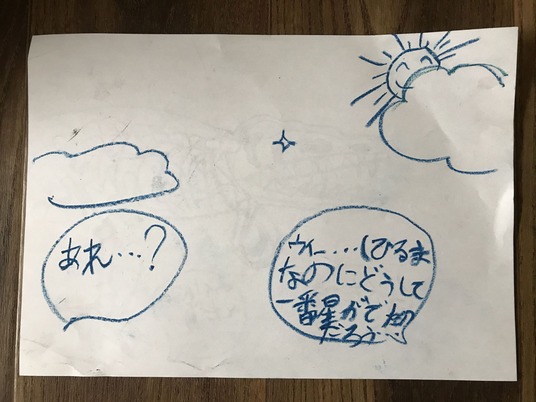 あれ…?
ウィ…(ひるま
なのにどうして
一番星がで
だろう…